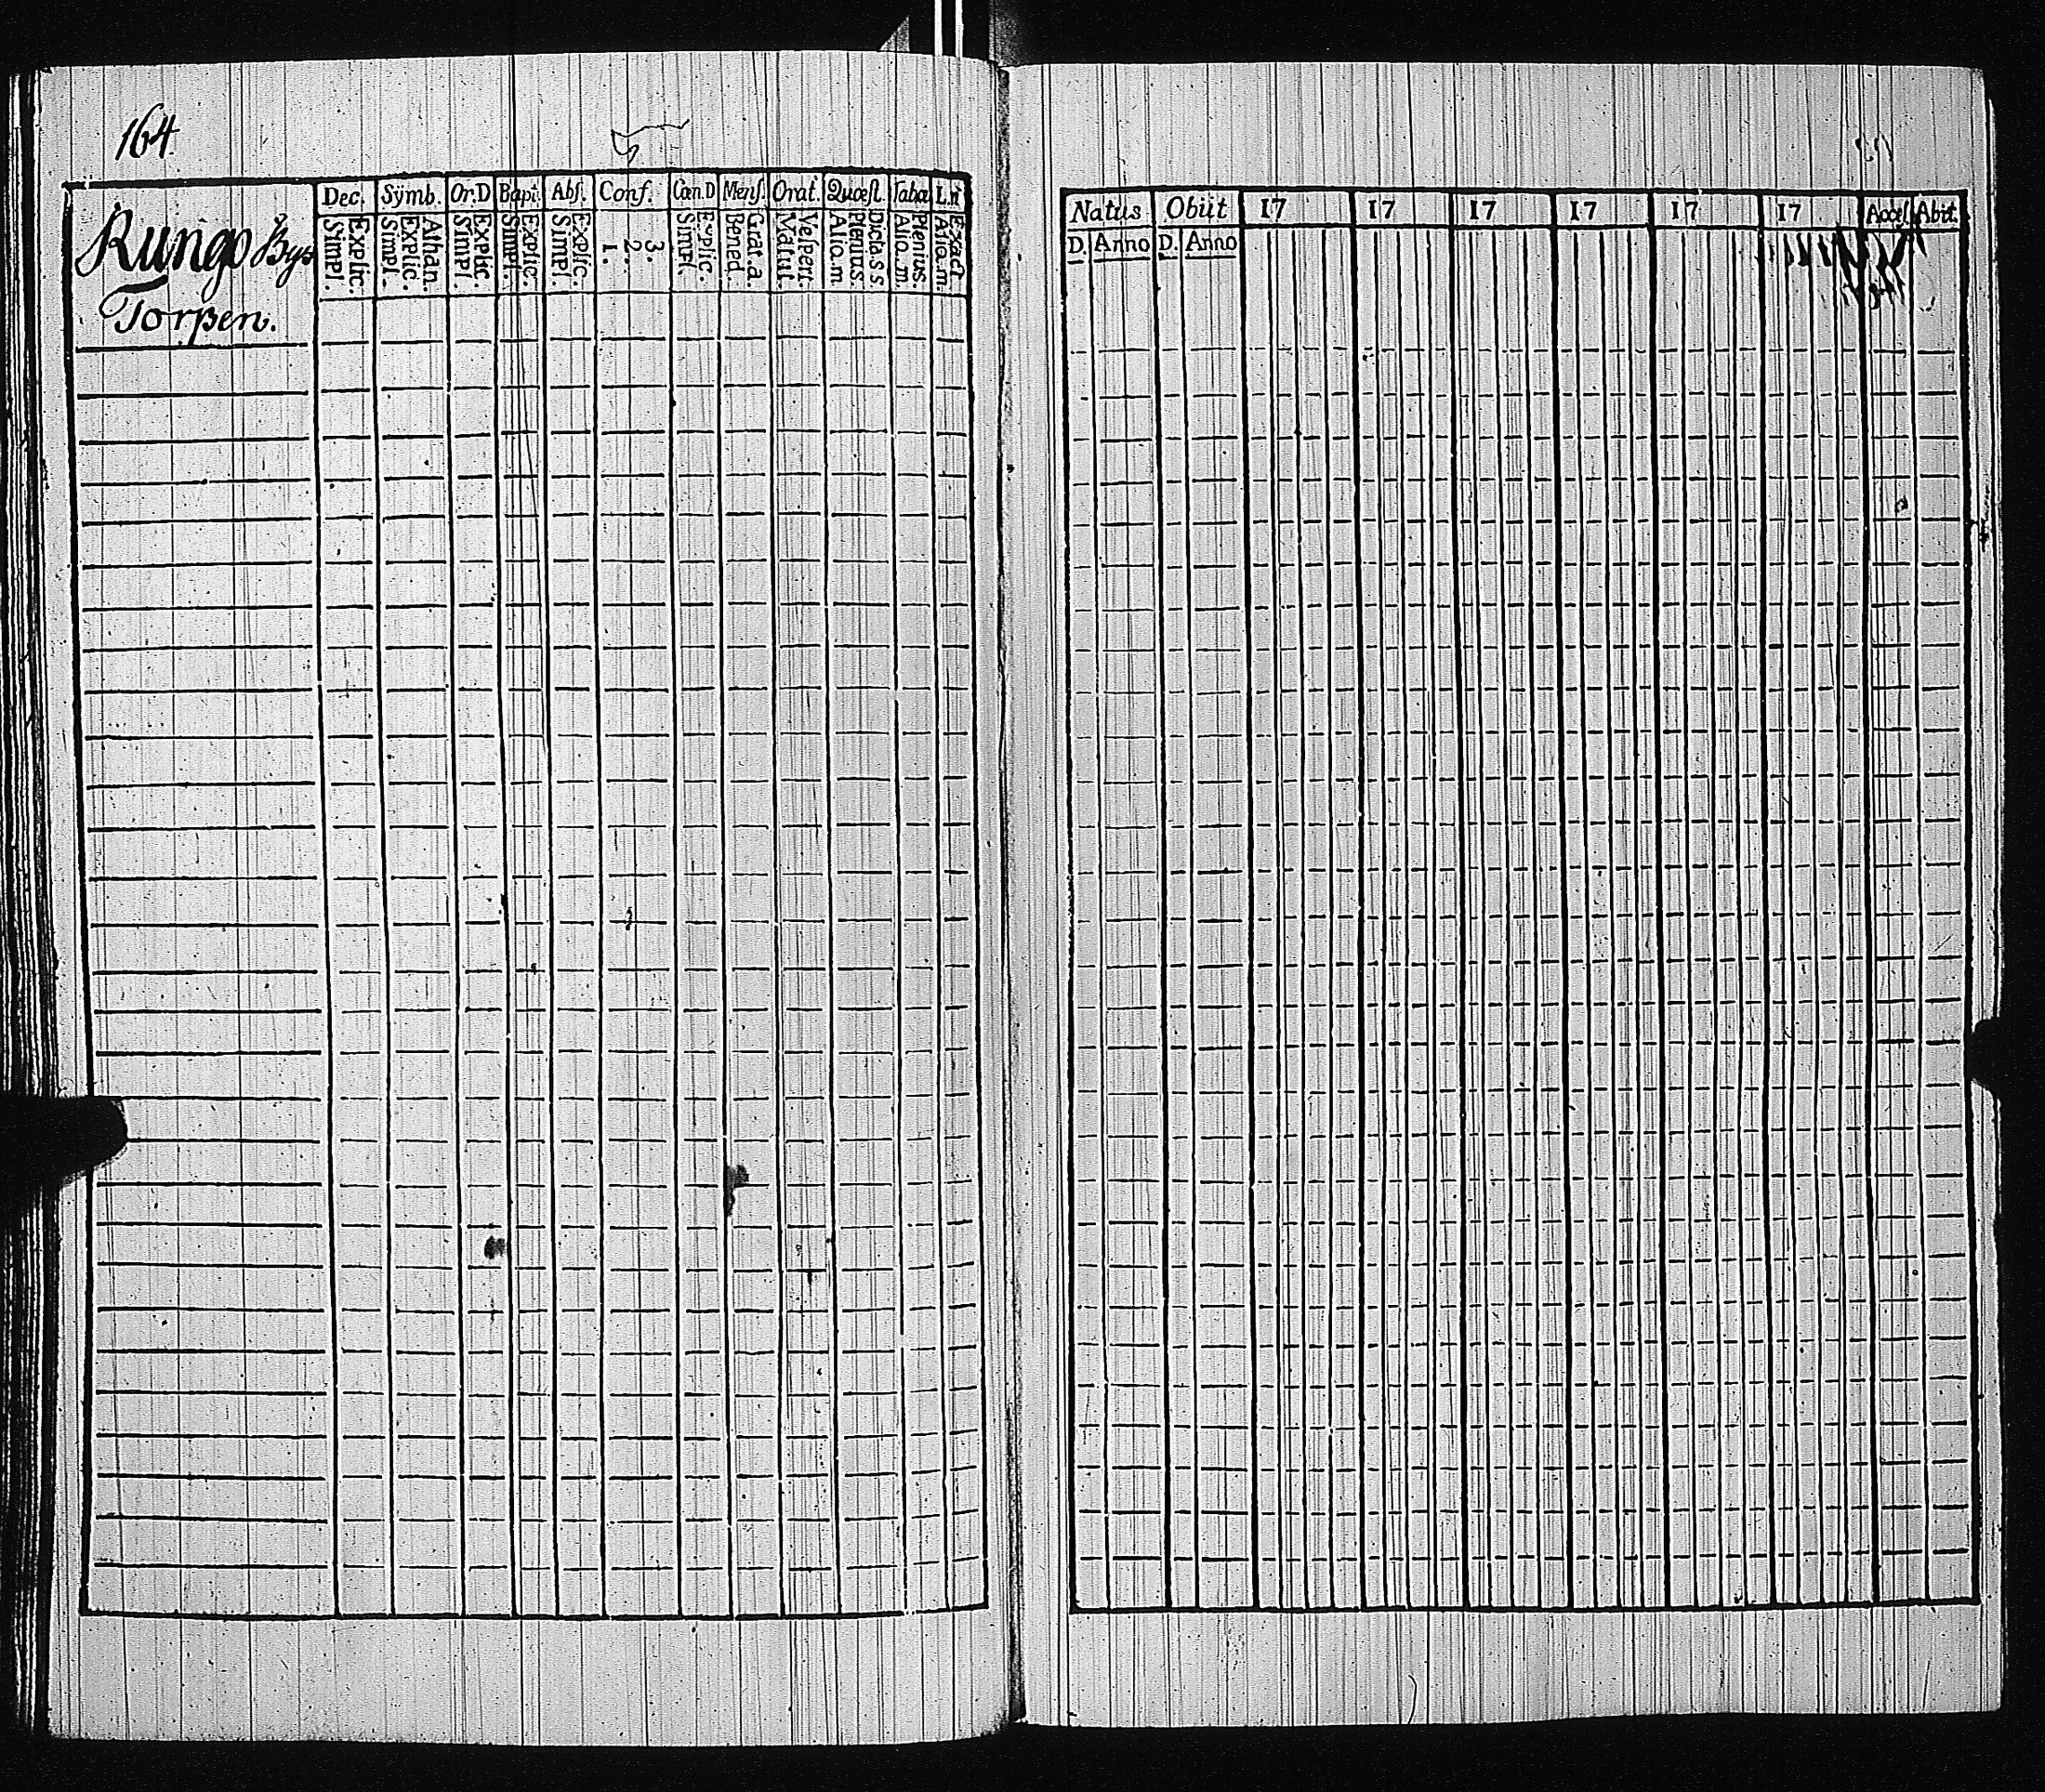 164.
Rungo Bys
Torpen.
Dec. Sÿmb. Or.D Bapt. Abſ. Conf. Cœn.D Menſ. Orat. Quæſt. Taba L.n
Simpl. Explic. Simpl. Explic. Athan. Simpl. Explic. Simpl. Explic. Simpl. Explic. 1. 2. 3. Simpl. Explic. Bened. Grat.a. Matut. Veſpert. Alio.m Plenius. Dicta.s.s Alio.m. Plenius. Alio.m. Exact.
Natus Obiit 17 17 17 17 17 17 Acceſ. Abiit.
D. Anno D. Anno